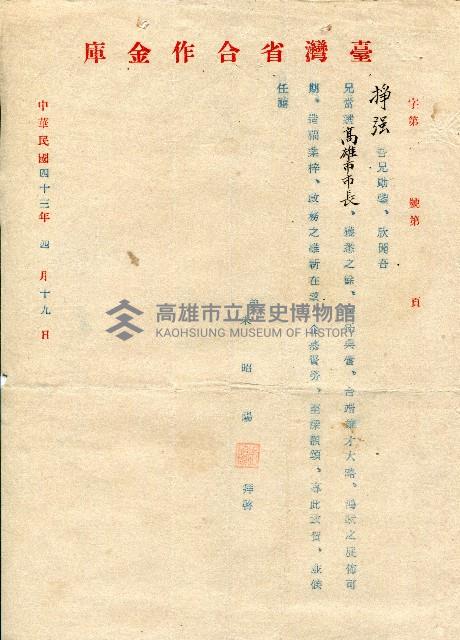 臺灣省合作金庫
字第 號第 頁
掙强吾兄勛鑒、欣聞吾
兄當選高雄市市長、獲悉之餘、興奮、台端雄才大略、鴻猷之展佈可
期、造福桑梓、政務之維新在 賢勞、至深額頌、專此 賀、並候
任禧
弟 朱昭陽 拜啓
中華民國四十三年 四 月 十九 日
高雄市立歷史博物館
KAOHSIUNG MUSEUM OF HISTORY